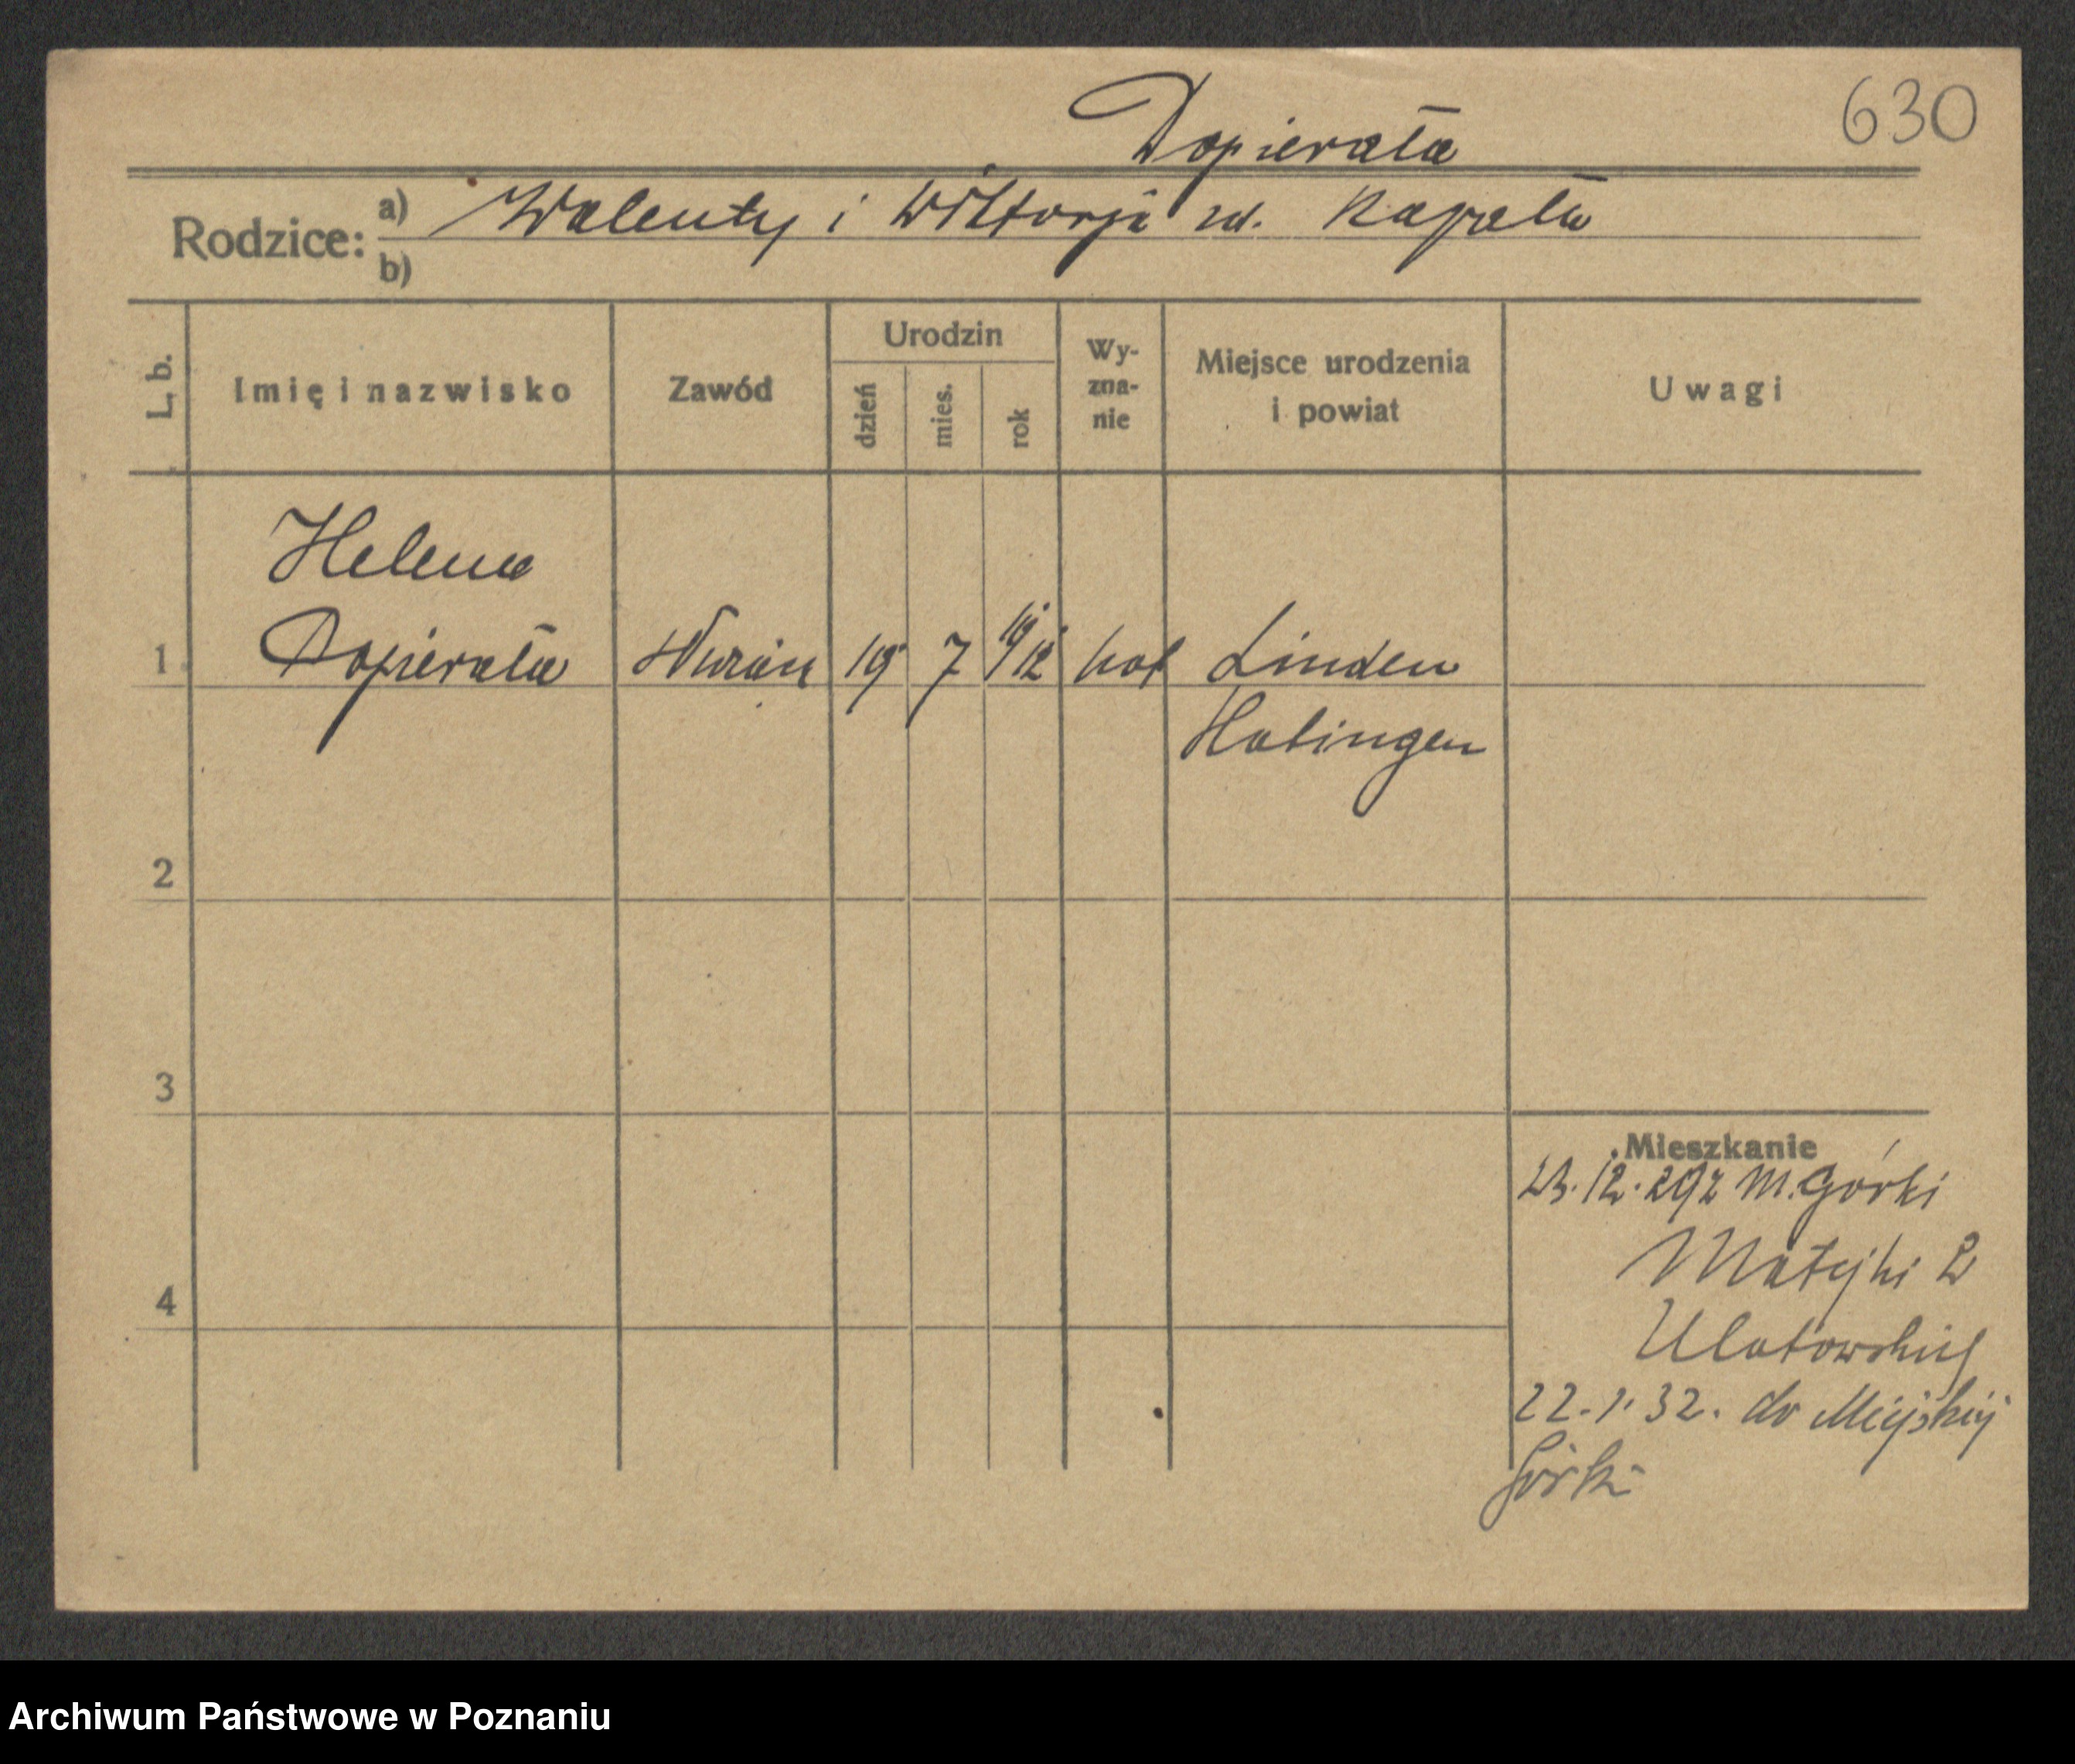 630
Dopierała
Rodzice: a) Walenty i Wiktorja zd. Kapała
b)
L. b.
Imię i nazwisko
Zawód
Urodzin
dzień
mies.
rok
Wy-
zna-
nie
Miejsce urodzenia
i powiat
Uwagi
Helena
1 Dopierała 19 7 1912 kat Linden
Hatingen
2
3
4
Mieszkanie
23.12.29 z M. Górki
Matejki 2
Ulatowskiej
22.1.32. do Miejskiej
Górki
Archiwum Państwowe w Poznaniu